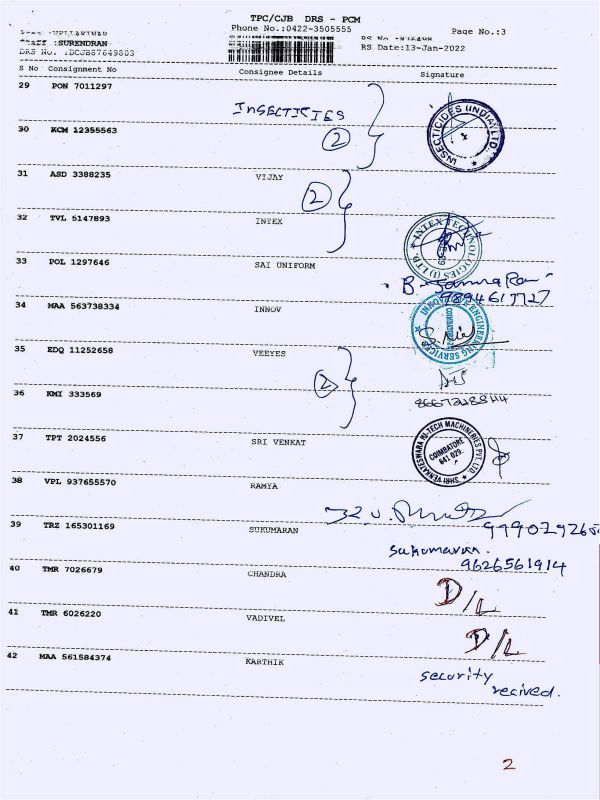 TPC/CJB DRS - PCM
Phone No.:0422-3505555 Page No.:3
Staff :SURENDRAN
DRS No. :DCJB87649803 RS Date:13-Jan-2022
S No Consignment No Consignee Details Signature
29 PON 7011297
INSECTICIES
30 KCM 12355563 2
INSECTICIDES (INDIA) LTD.
31 ASD 3388235 VIJAY
2
32 TVL 5147893 INTEX
INTEX TECHNOLOGIES (I) LTD.
33 POL 1297646 SAI UNIFORM
34 MAA 563738334 INNOV
ENGINEERING SERVICES
35 EDQ 11252658 VEEYES
2
36 KMI 333569
37 TPT 2024556 SRI VENKAT
SHRI VENKATESWARA HI-TECH MACHINERIES PVT. LTD
COIMBATORE
641 029.
38 VPL 937655570 RAMYA
39 TRZ 165301169 SUKUMARAN
sukumaran.
9626561914
40 TMR 7026679 CHANDRA
D/L
41 TMR 6026220 VADIVEL
D/L
42 MAA 561584374 KARTHIK
security
recived.
2